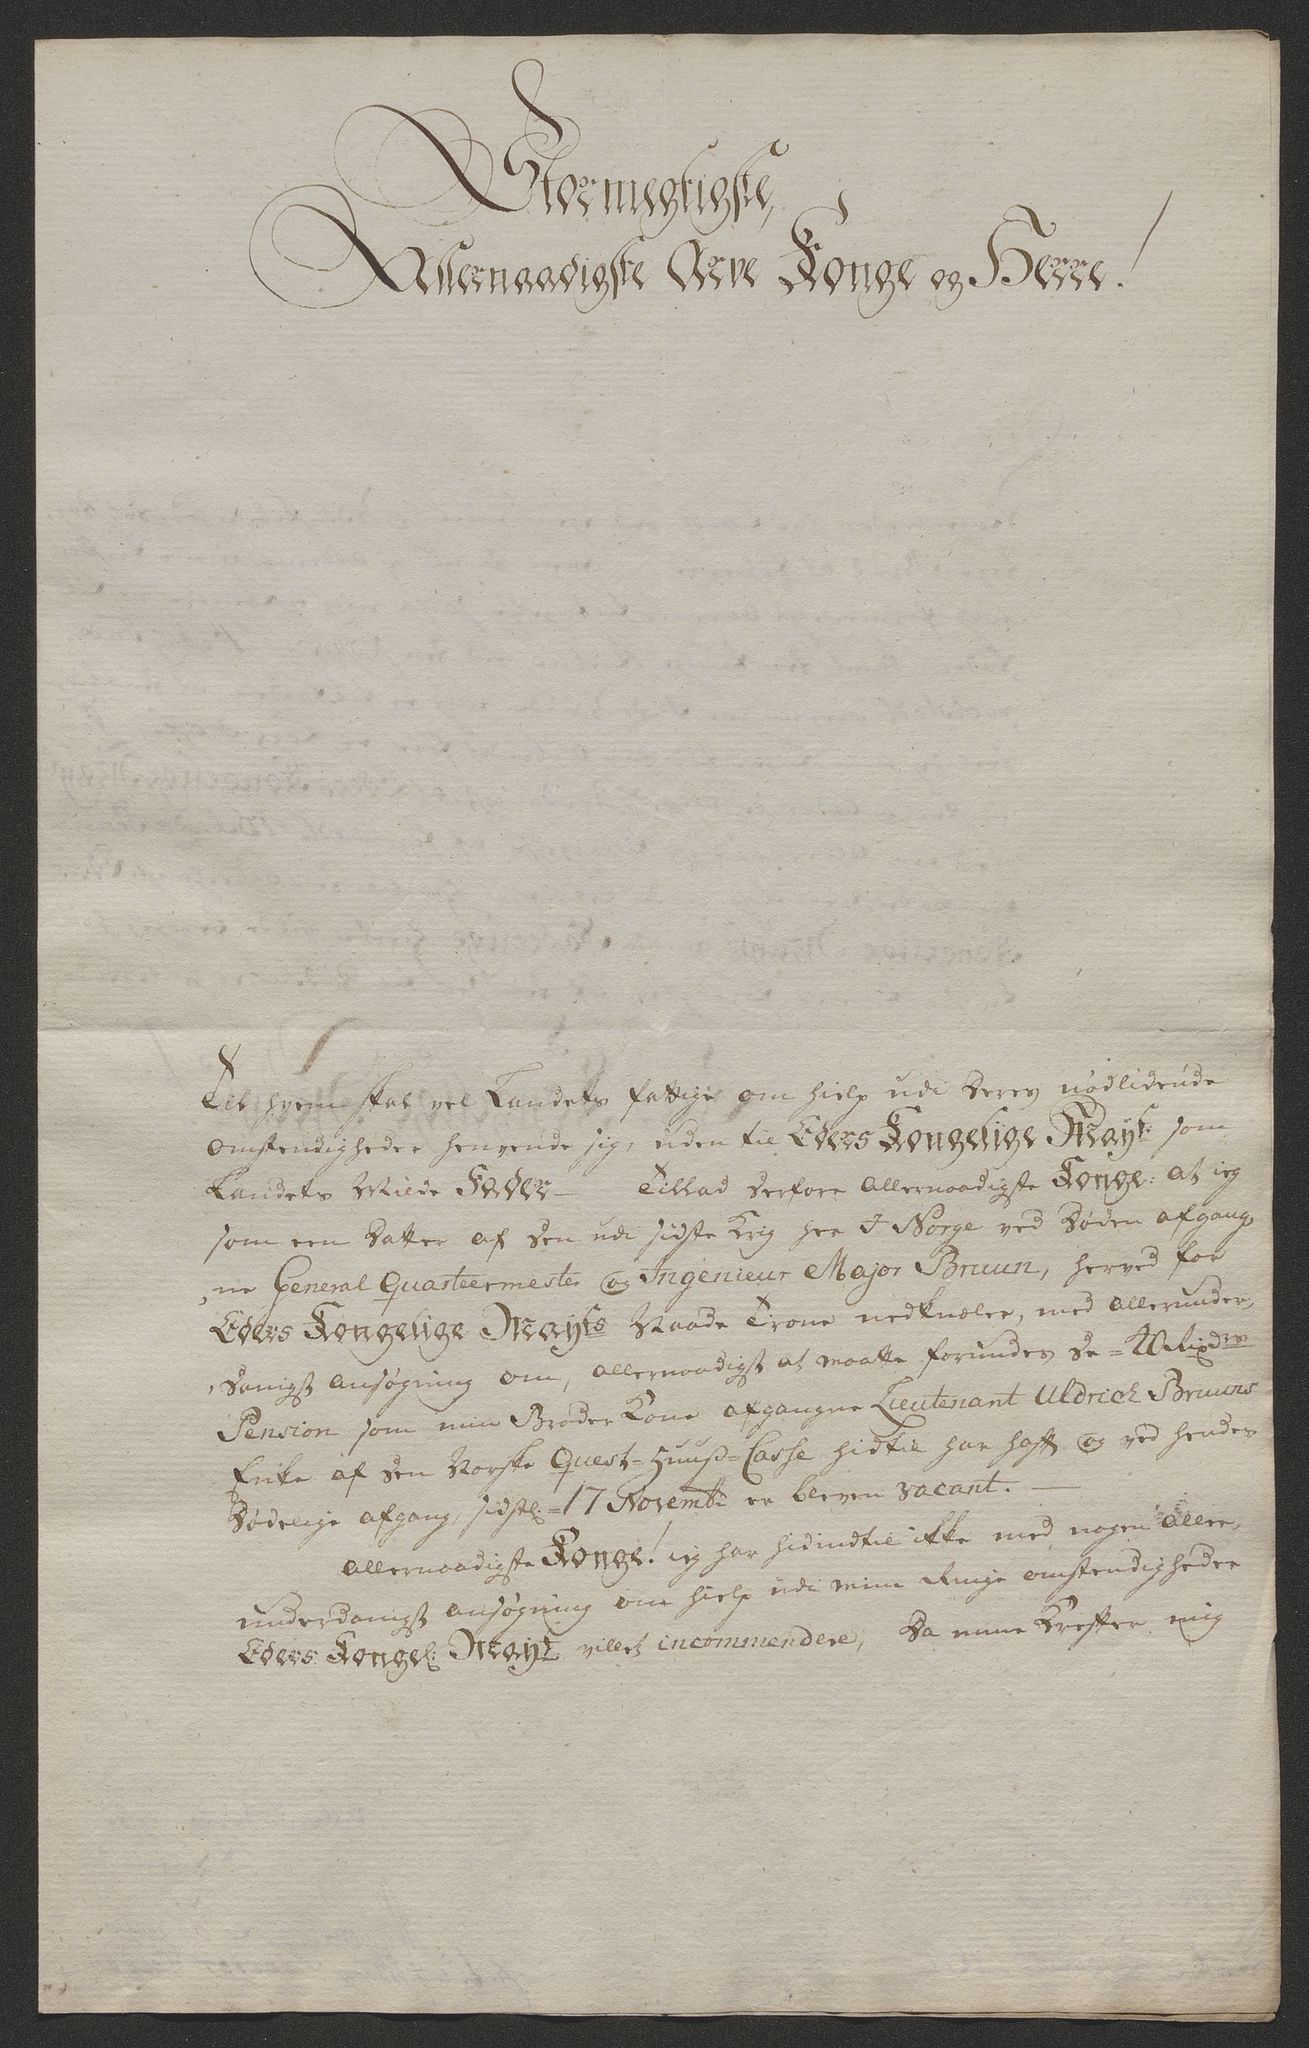 Stormegtigste,
Allernaadigste Arve Konge og Herre!
Til hvem skal vel Landets fattige om hielp udi deres nødlidende
omstendigheder henvende sig, uden til Eders Kongelige Mayt: som
Landets Milde Fader — Tillad derfore Allernaadigste Konge: at ieg
som een Datter af den udi sidste Krig her I Norge ved Døden afgang,
,ne General Quarteermester og Ingenieur Major Bruun, herved for
Eders Kongelige Mayts Naade Trone nedknæler, med allerunder,
,danigst ansøgning om, allernaadigst at maatte forundes de = 20 Rixdrs
Pension som min Broder Kone afgangne Lieutenant Uldrich Bruuns
Enke af den Norske Quest=Huuss=Casse hidtil har hafft og ved hendes
Dødelige afgang, sidstl: = 17 Novembr: er bleven vacant. —
Allernaadigste Konge! ieg har hidindtil ikke med nogen aller,
underdanigst ansøgning om hielp udi mine Ringe omstendigheder
Eders Kongel: Mayt villet incommendere, da mine Kreffter mig